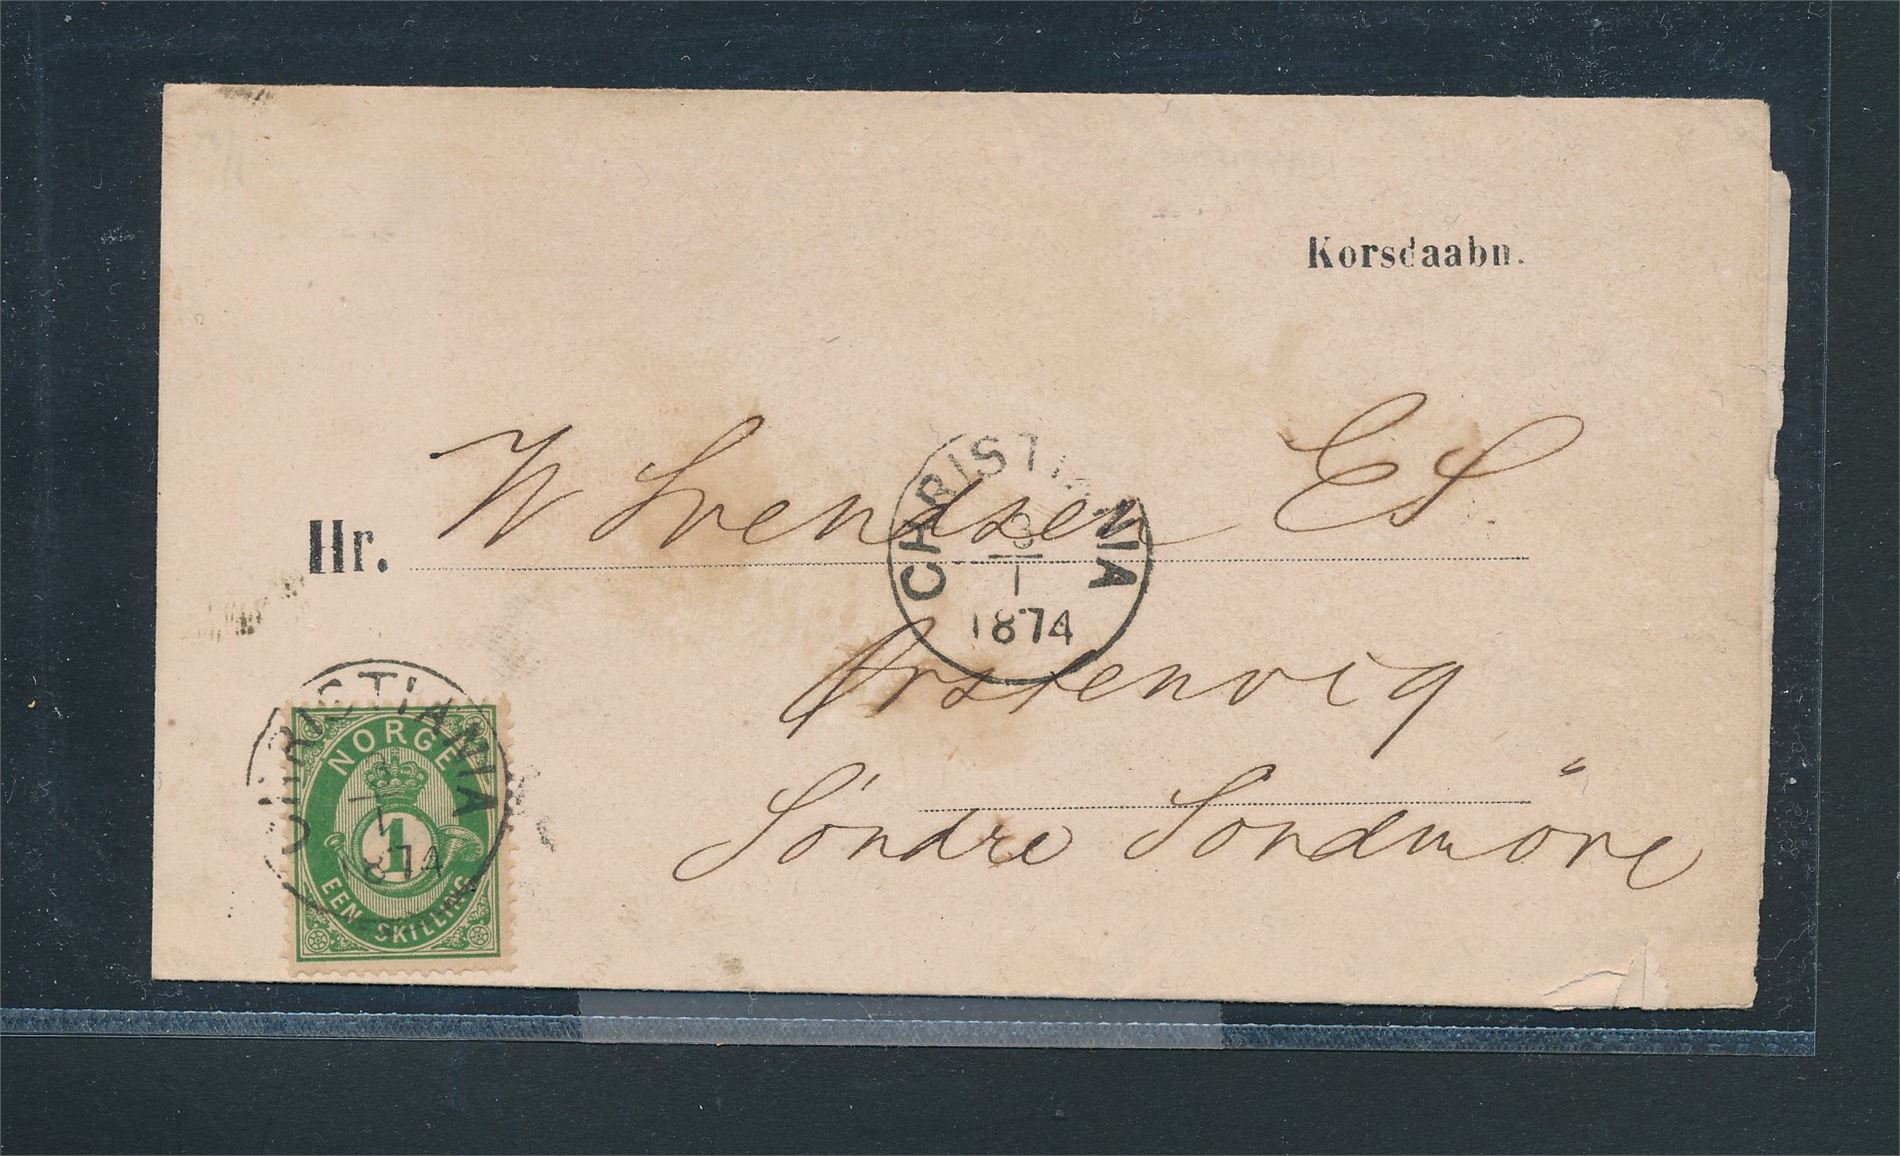 Korsdaabn.
Hr. W Svendsen ES
CHRISTIANIA
8
1
1874
Ørstenvig
Søndre Søndmöre
CHRISTIANIA
1
1874
NORGE
1
EEN SKILLING